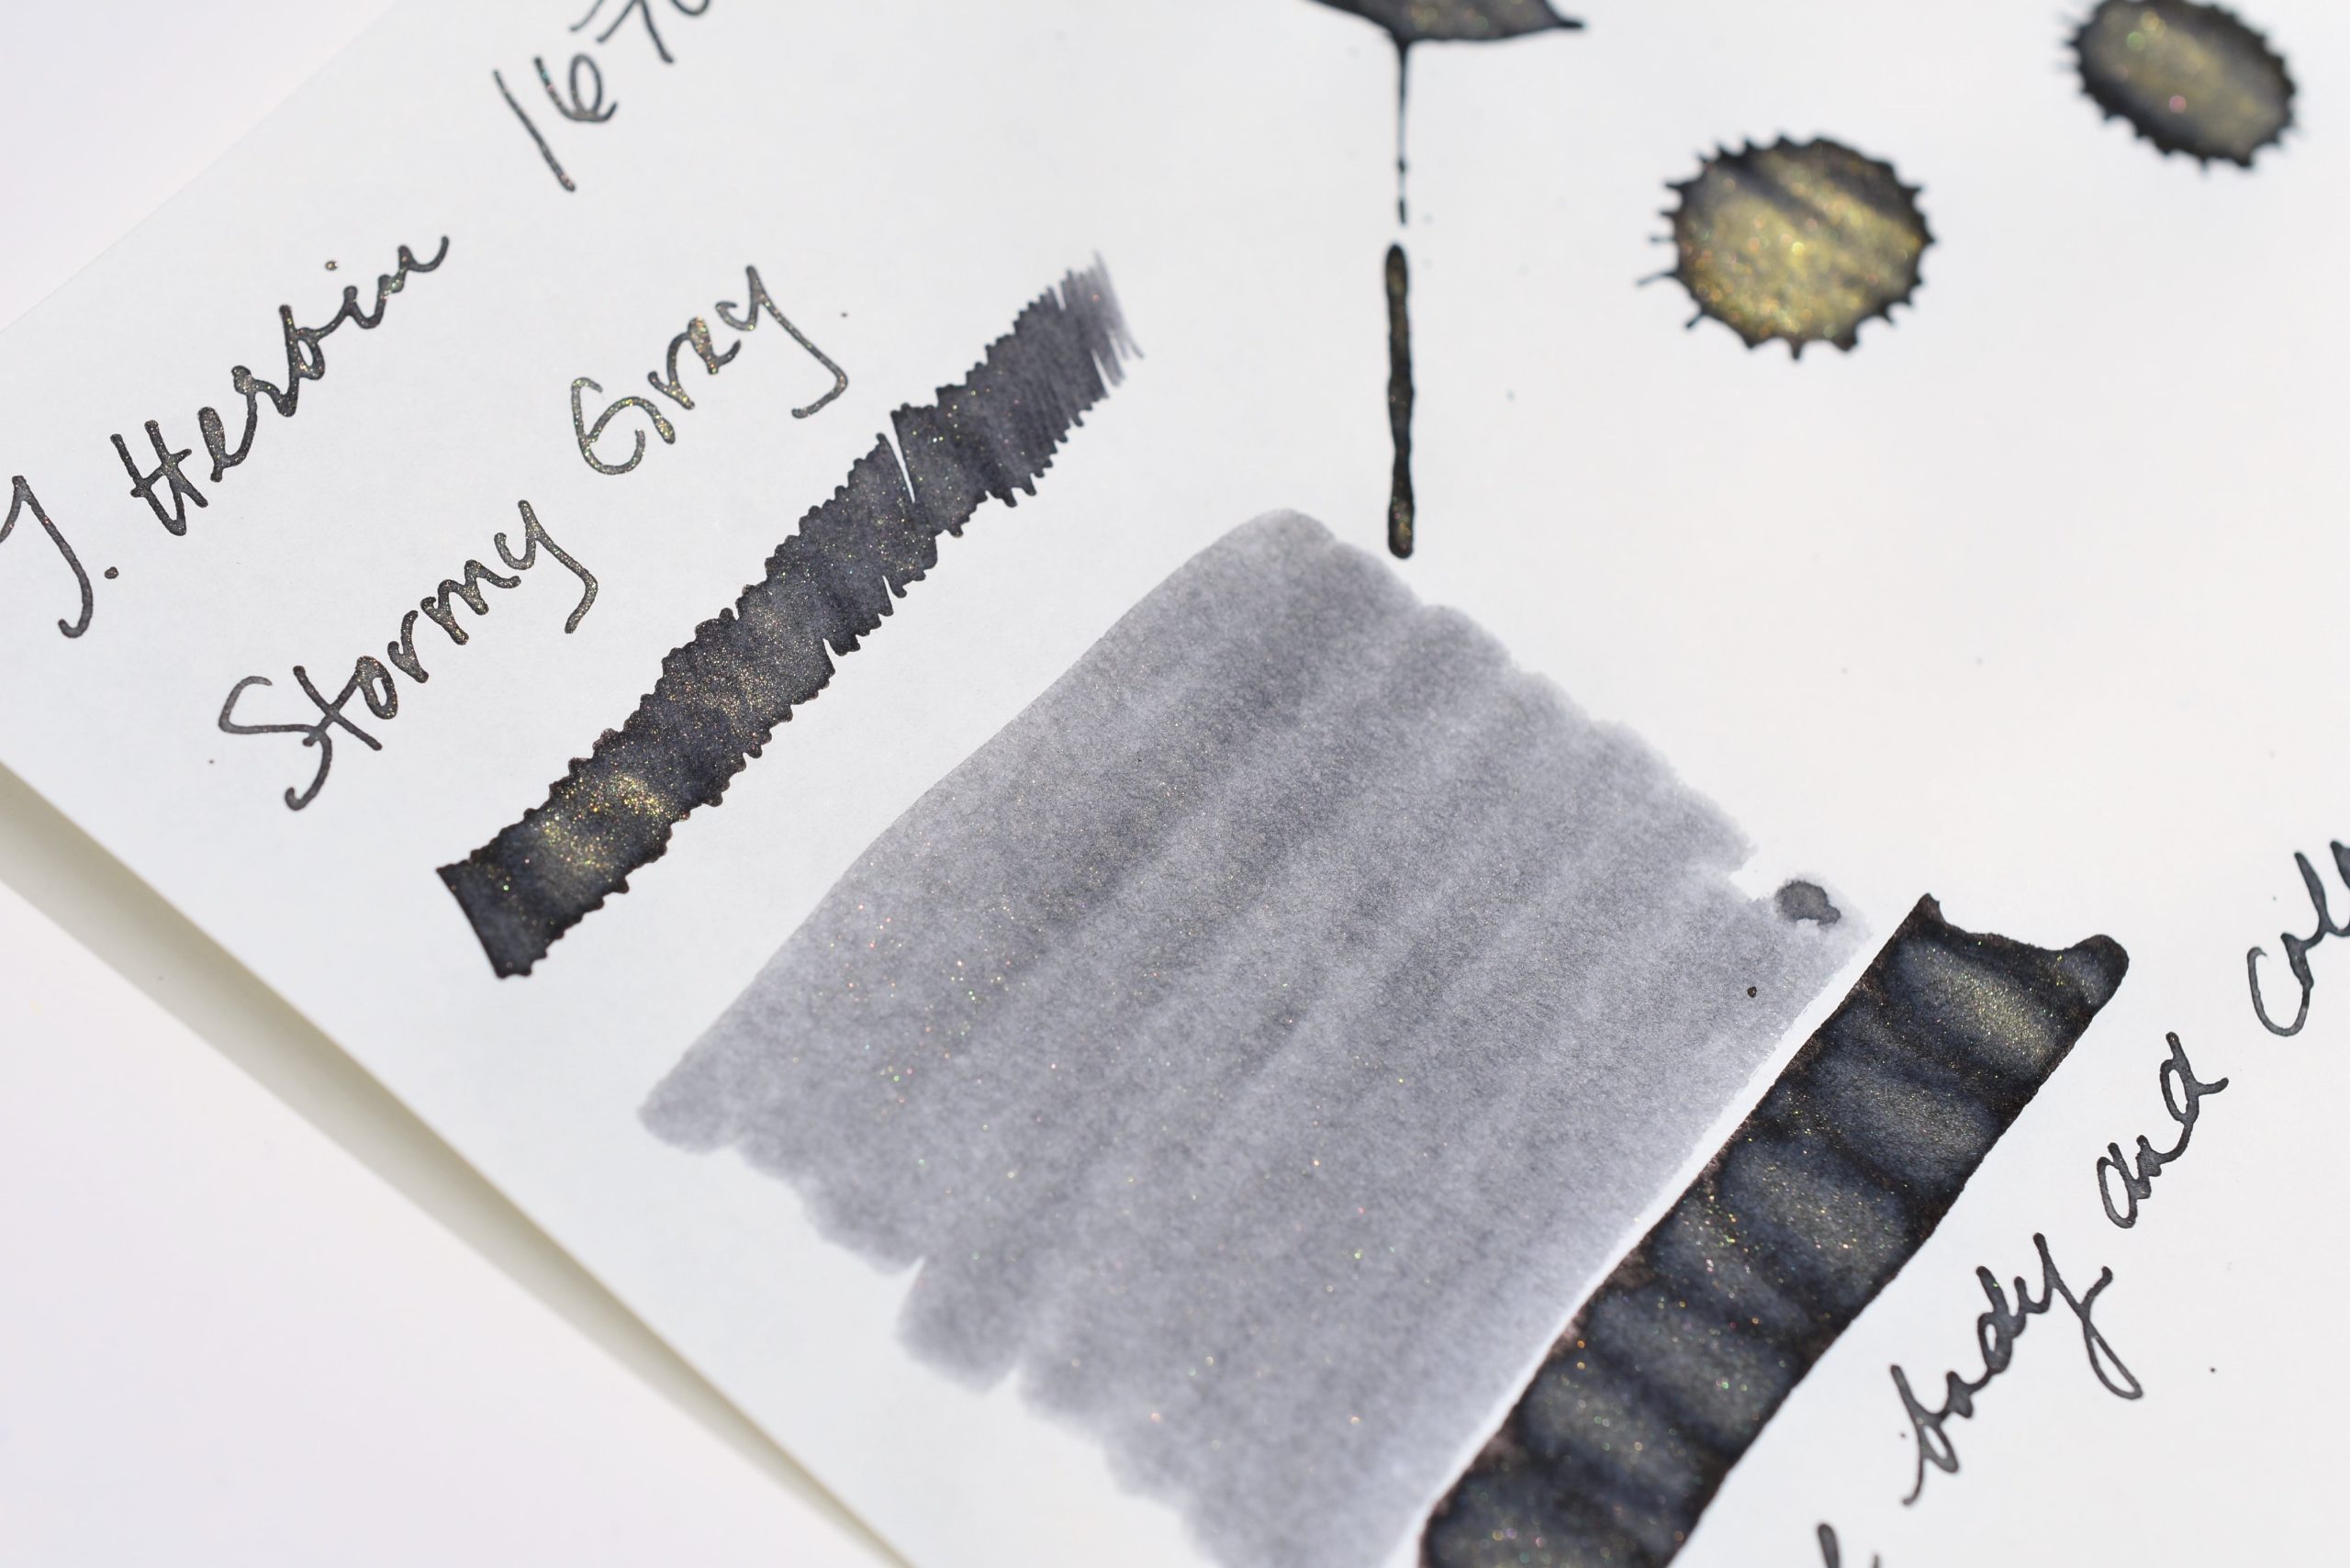 J. Herbin 1670
Stormy Grey
body and